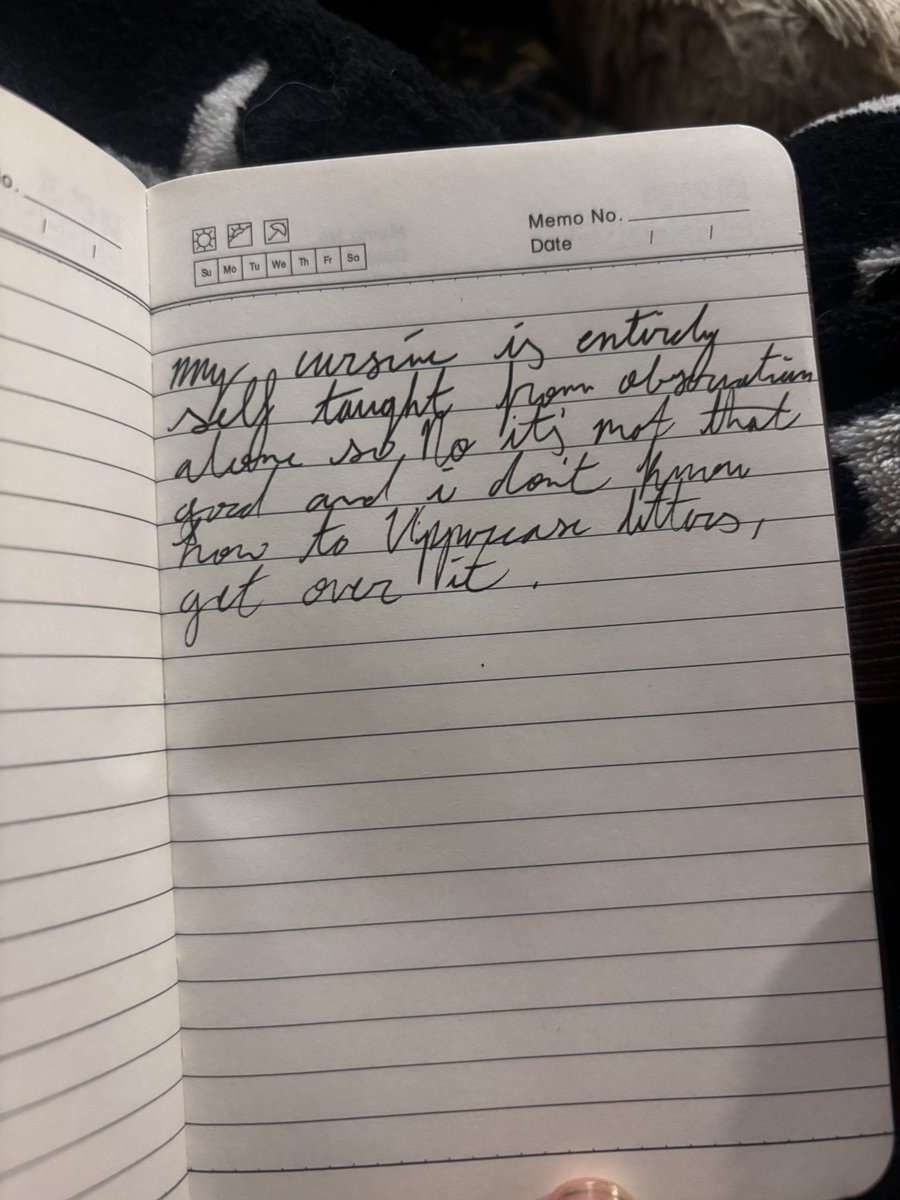 o.
Memo No.
Date / /
Su Mo Tu We Th Fr Sa
my cursive is entirely
self taught from observation
alone so, No it's not that
good and i don't know
how to Uppercase letters,
get over it.